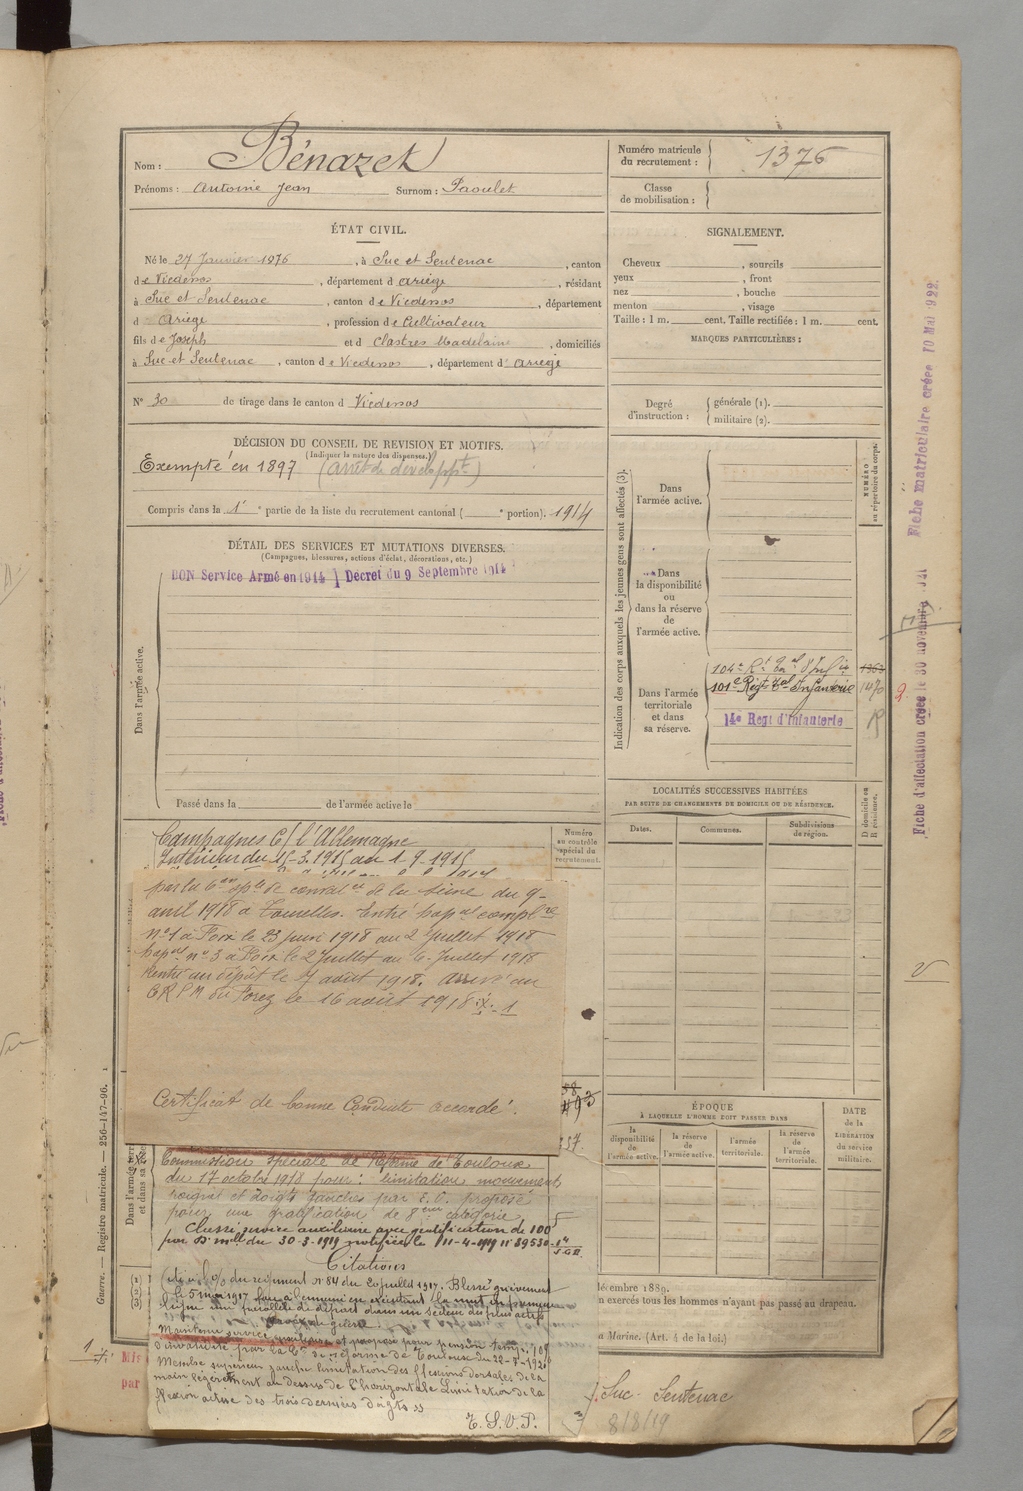 Nom : Bénazet
Prénoms : Antoine Jean Surnom : Paoulet
Numéro matricule du recrutement : 1376
Classe de mobilisation :
ÉTAT CIVIL.
Né le 27 Janvier 1876, à Suc et Sentenac, canton
de Vicdessos, département d Ariège, résidant
à Suc et Sentenac, canton de Vicdessos, département
d Ariège, profession de Cultivateur
fils de Joseph et d Clastres Madelaine, domiciliés
à Suc et Sentenac, canton de Vicdessos, département d'Ariège
N° 30 de tirage dans le canton d Vicdessos
SIGNALEMENT.
Cheveux , sourcils
yeux , front
nez , bouche
menton , visage
Taille : 1 m. cent. Taille rectifiée : 1 m. cent.
MARQUES PARTICULIÈRES :
Degré d'instruction : générale (1). militaire (2).
DÉCISION DU CONSEIL DE REVISION ET MOTIFS.
(Indiquer la nature des dispenses.)
Exempté en 1897 (arrêt de developpt)
Compris dans la 1e partie de la liste du recrutement cantonal ( e portion). 1914
DÉTAIL DES SERVICES ET MUTATIONS DIVERSES.
(Campagnes, blessures, actions d'éclat, décorations, etc.)
BON Service Armé en 1914 Decret du 9 Septembre 1914
Dans l'armée active.
Passé dans la de l'armée active le
Indication des corps auxquels les jeunes gens sont affectés (3).
NUMÉRO au répertoire du corps.
Dans l'armée active.
Dans la disponibilité ou dans la réserve de l'armée active.
Dans l'armée territoriale et dans sa réserve.
104e Rt Tal d'Infie 1363
101e Régt Tal Infanterie 1470
14e Regt d'Infanterie
LOCALITÉS SUCCESSIVES HABITÉES
PAR SUITE DE CHANGEMENTS DE DOMICILE OU DE RÉSIDENCE.
Dates. Communes. Subdivisions de région. D domicile ou R résidence.
Campagnes C/ l'Allemagne
Intérieur du 15-3.1915 au 1.9.1915
Numéro au contrôle spécial du recrutement.
avril 1918 à Tournelles. Entré hopal complre
n°1 à Foix le 23 juin 1918 au 2 Juillet 1918
hopal n° 3 à Foix le 2 Juillet au 6 Juillet 1918
Rentré au dépôt le 7 août 1918. Arrivé au
le 16 août 1918
Certificat de bonne Conduite accordé.
Commission Spéciale de Réforme de Toulouse
du 17 octobre 1918 pour : limitation mouvements
poignet et doigts gauches par E.O. proposé
pour une gratification de 8ème catégorie
Classé service auxiliaire avec gratification de 100f
par Dn mlle du 30-3-1919 notifiée le 11-4-1919 n° 89530
Citations
du régiment n° 84 du 20 juillet 1917. Blessé grièvement
le 5 mai 1917
ligne une parallèle de départ dans un secteur des plus actifs
Croix de guerre
Maintenu service auxiliaire et proposé pour pension temp. 10%
d'invalidité par la Con de réforme de Toulouse du 22-8-1920
Membre supérieur gauche limitation des flexions dorsales de la
main légèrement au dessus de l'horizontale Limitation de la
flexion active des trois derniers doigts
T.S.V.P.
ÉPOQUE
À LAQUELLE L'HOMME DOIT PASSER DANS
la disponibilité de l'armée active. la réserve de l'armée active. l'armée territoriale. la réserve de l'armée territoriale.
DATE de la LIBÉRATION du service militaire.
décembre 1889.
n exercés tous les hommes n'ayant pas passé au drapeau.
Marine. (Art. 4 de la loi.)
Suc Sentenac
8/8/19
Guerre. — Registre matricule. — 256-147-96.
Fiche matriculaire créée 10 Mai 1922.
Fiche d'affectation créée le 30 novembre 1921